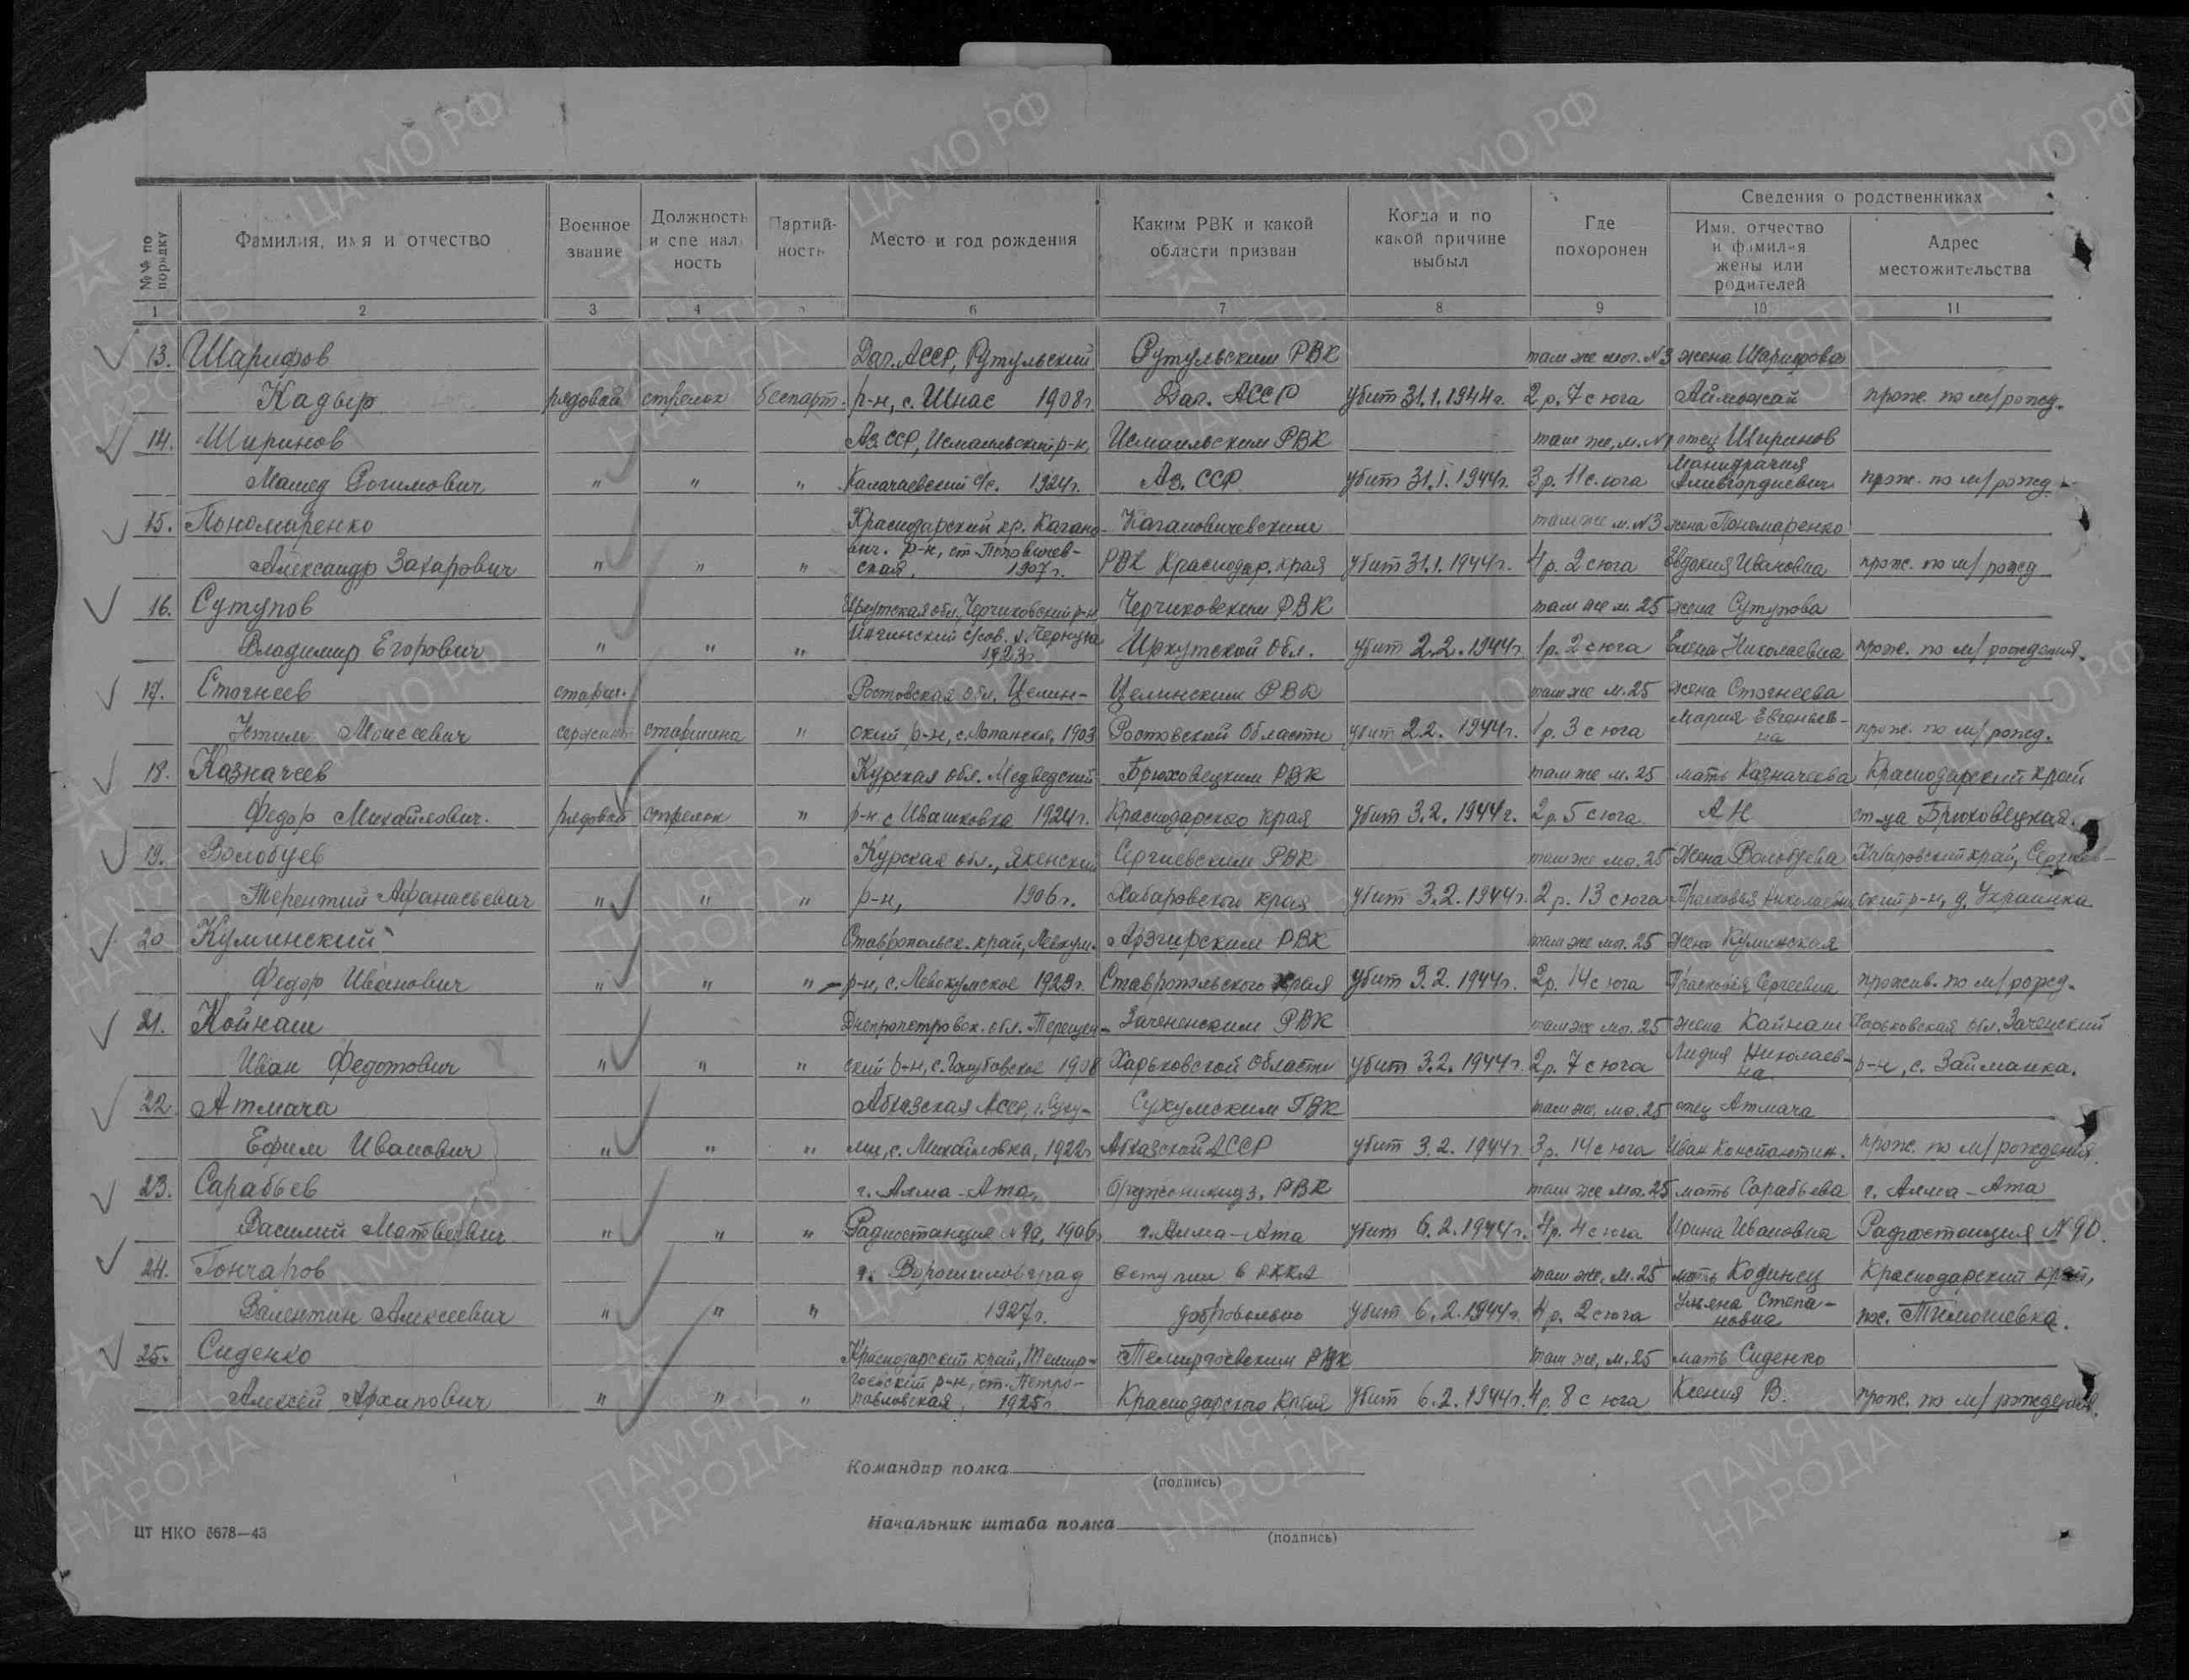 №№ по порядку
Фамилия, имя и отчество
Военное звание
Должность и специальность
Партийность
Место и год рождения
Каким РВК и какой области призван
Когда и по какой причине выбыл
Где похоронен
Сведения о родственниках
Имя, отчество и фамилия жены или родителей
Адрес местожительства
1 2 3 4 5 6 7 8 9 10 11
13. Шарифов Даг. АССР, Рутульский Рутульским РВК там же мог. №3 жена Шарифова
Кадыр рядовой стрелок беспарт. р-н, с. Шнас 1908г. Даг. АССР убит 31.1.1944г. 2 р. 7 с юга прож. по м/рожд.
14. Ширинов Аз. ССР, Исмаильский р-н, Исмаильским РВК там же, м. отец Ширинов
Мамед Рогимович " " " 1924г. Аз. ССР убит 31.1.1944г. 3 р. 11 с. юга прож. по м/рожд.
15. Пономаренко Краснодарский кр. Кагано- Кагановичевским там же м. №3 жена Пономаренко
вич. р-н, ст. Поповичев-
Александр Захарович " " " ская, 1907г. РВК Краснодар. края убит 31.1.1944г. 4 р. 2 с юга Евдокия Ивановна прож. по м/рожд
16. Сутупов Иркутская обл., Черчиковский р-н Черчиковским РВК там же м. 25 жена Сутупова
Владимир Егорович " " " 1923г. Иркутской Обл. убит 2.2.1944г. 1 р. 2 с юга Елена Николаевна прож. по м/рождения.
17. Стогнеев старш. Ростовская обл. Целин- Целинским РВК там же м. 25 жена Стогнеева
Моисеевич сержант старшина " ский р-н, с. Лопанское, 1903 Ростовский Области убит 2.2.1944г. 1 р. 3 с юга Мария Евгеньев-
на прож. по м/рожд.
18. Казначеев Курская обл. Медведский Брюховецким РВК там же м. 25 мать Казначеева Краснодарский край
Федор Михайлович. рядовой стрелок " р-н с Ивашковка 1924г. Краснодарского края убит 3.2.1944г. 2 р. 5 с юга А Н ст-ца Брюховецкая.
19. Волобуев Курская обл., Якенский Сергиевским РВК там же мог. 25 Жена Волобуева Хабаровский край, Сергиев-
Терентий Афанасьевич " " " р-н, 1906г. Хабаровского края убит 3.2.1944г. 2 р. 13 с юга Прасковья Николаевна ский р-н, д. Украинка.
20 Кулинский Ставропольск. край, Левокум. Арзгирским РВК там же мог. 25 жена Кулинская
Федор Иванович " " " р-н, с. Левокумское 1923г. Ставропольского края убит 3.2.1944г. 2 р. 14 с юга Прасковья Сергеевна прожив. по м/рожд.
21. Койнаш Днепропетровск. обл. Терещен- Зачененским РВК там же мог. 25 жена Кайнаш Харьковская обл. Заченский
Иван Федотович " " " ский р-н, с. Голубовское 1908 Харьковской области убит 3.2.1944г. 2 р. 7 с юга Лидия Николаев-
на р-н, с. Займанка.
22. Атмача Абхазская АССР, г. Суху- Сухумским ГВК там же, мог. 25 отец Атмача
Ефим Иванович " " " ми, с. Михайловка, 1922г Абхазской АССР убит 3.2.1944г. 3 р. 14 с юга Иван Константин. прож. по м/рождения.
23. Сарабьев г. Алма-Ата, Орджоникидз. РВК там же мог. 25 мать Сарабьева г. Алма-Ата
Василий Матвеевич " " " Радиостанция №90, 1906 г. Алма-Ата убит 6.2.1944г. 4 р. 4 с юга Ирина Ивановна Радиостанция №90.
24. Гончаров г. Ворошиловград вступил в РККА там же, м. 25 мать Кодинец Краснодарский край,
Валентин Алексеевич " " " 1927г. добровольно убит 6.2.1944г. 4 р. 2 с юга Ульяна Степа-
новна пос. Тимошевка.
25. Сиденко Краснодарский край, Темир- Темиргоевским РВК там же, м. 25 мать Сиденко
гоевский р-н, ст. Петро-
Алексей Архипович " " " павловская, 1925г. Краснодарского Края убит 6.2.1944г. 4 р. 8 с юга Ксения В. прож. по м/рождения.
Командир полка
(подпись)
Начальник штаба полка
(подпись)
ЦТ НКО 6678—43
ЦАМО РФ
ПАМЯТЬ НАРОДА